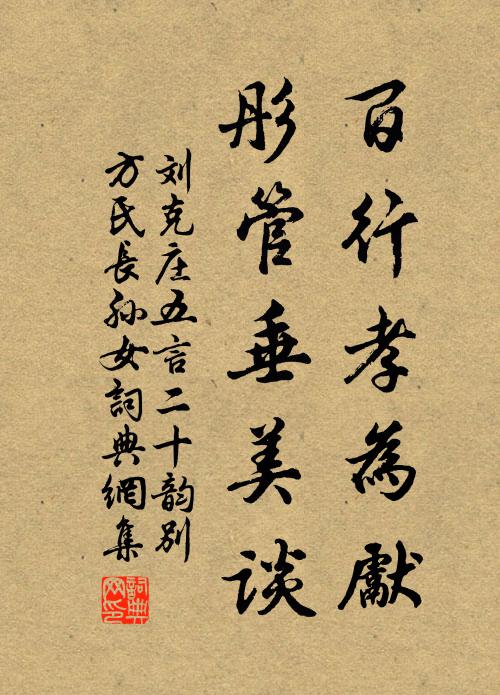 百行孝為獻
彤管垂美談
刘克庄五言二十韵别
方氏長孙女詞典網集
詞典网印